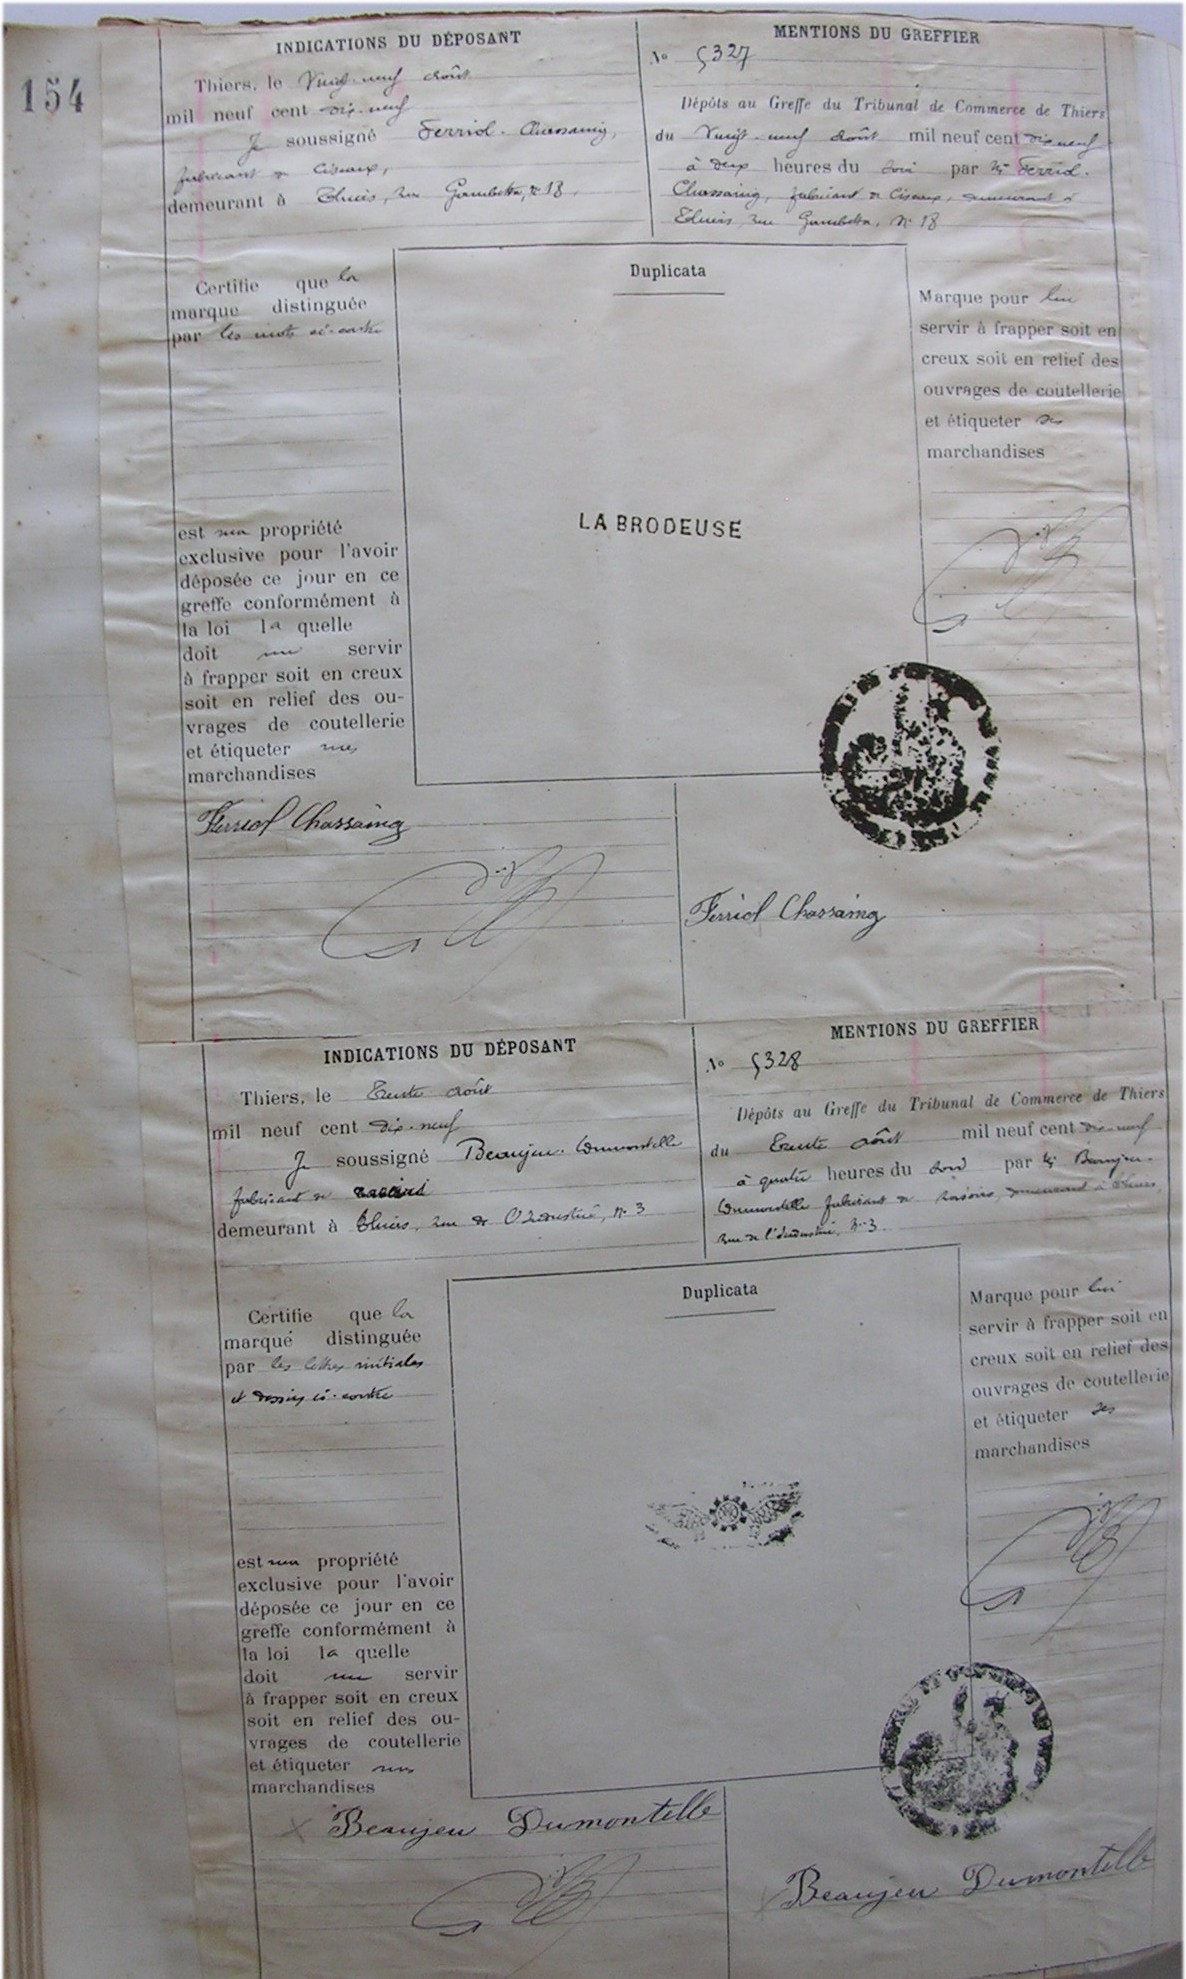 154
INDICATIONS DU DÉPOSANT
Thiers, le Vingt-neuf Août
mil neuf cent dix-neuf
Je soussigné Ferriol-Chassaing,
fabricant de Ciseaux,
demeurant à Thiers, rue Gambetta, n° 18
MENTIONS DU GREFFIER
No 5327
Dépôts au Greffe du Tribunal de Commerce de Thiers
du Vingt-neuf Août mil neuf cent dix neuf
à deux heures du soir par Mr Ferriol-
Chassaing, fabricant de Ciseaux, demeurant à
Thiers, rue Gambetta, N° 18
Certifie que la
marque distinguée
par les mots ci-contre
est ma propriété
exclusive pour l'avoir
déposée ce jour en ce
greffe conformément à
la loi la quelle
doit me servir
à frapper soit en creux
soit en relief des ou-
vrages de coutellerie
et étiqueter mes
marchandises
Duplicata
LA BRODEUSE
Marque pour lui
servir à frapper soit en
creux soit en relief des
ouvrages de coutellerie
et étiqueter ses
marchandises
Ferriol Chassaing
Ferriol Chassaing
INDICATIONS DU DÉPOSANT
Thiers, le Trente Août
mil neuf cent dix-neuf
Je soussigné Beaujeu-Dumontelle
fabricant de rasoirs
demeurant à Thiers, rue de l'Industrie, n° 3
MENTIONS DU GREFFIER
No 5328
Dépôts au Greffe du Tribunal de Commerce de Thiers
du Trente Août mil neuf cent dix-neuf
à quatre heures du soir par Mr Beaujeu-
Dumontelle fabricant de rasoirs, demeurant à Thiers,
rue de l'Industrie, N° 3
Certifie que la
marque distinguée
par les lettres initiales
et dessin ci-contre
est ma propriété
exclusive pour l'avoir
déposée ce jour en ce
greffe conformément à
la loi la quelle
doit me servir
à frapper soit en creux
soit en relief des ou-
vrages de coutellerie
et étiqueter mes
marchandises
Duplicata
Marque pour lui
servir à frapper soit en
creux soit en relief des
ouvrages de coutellerie
et étiqueter ses
marchandises
Beaujeu Dumontelle
Beaujeu Dumontelle